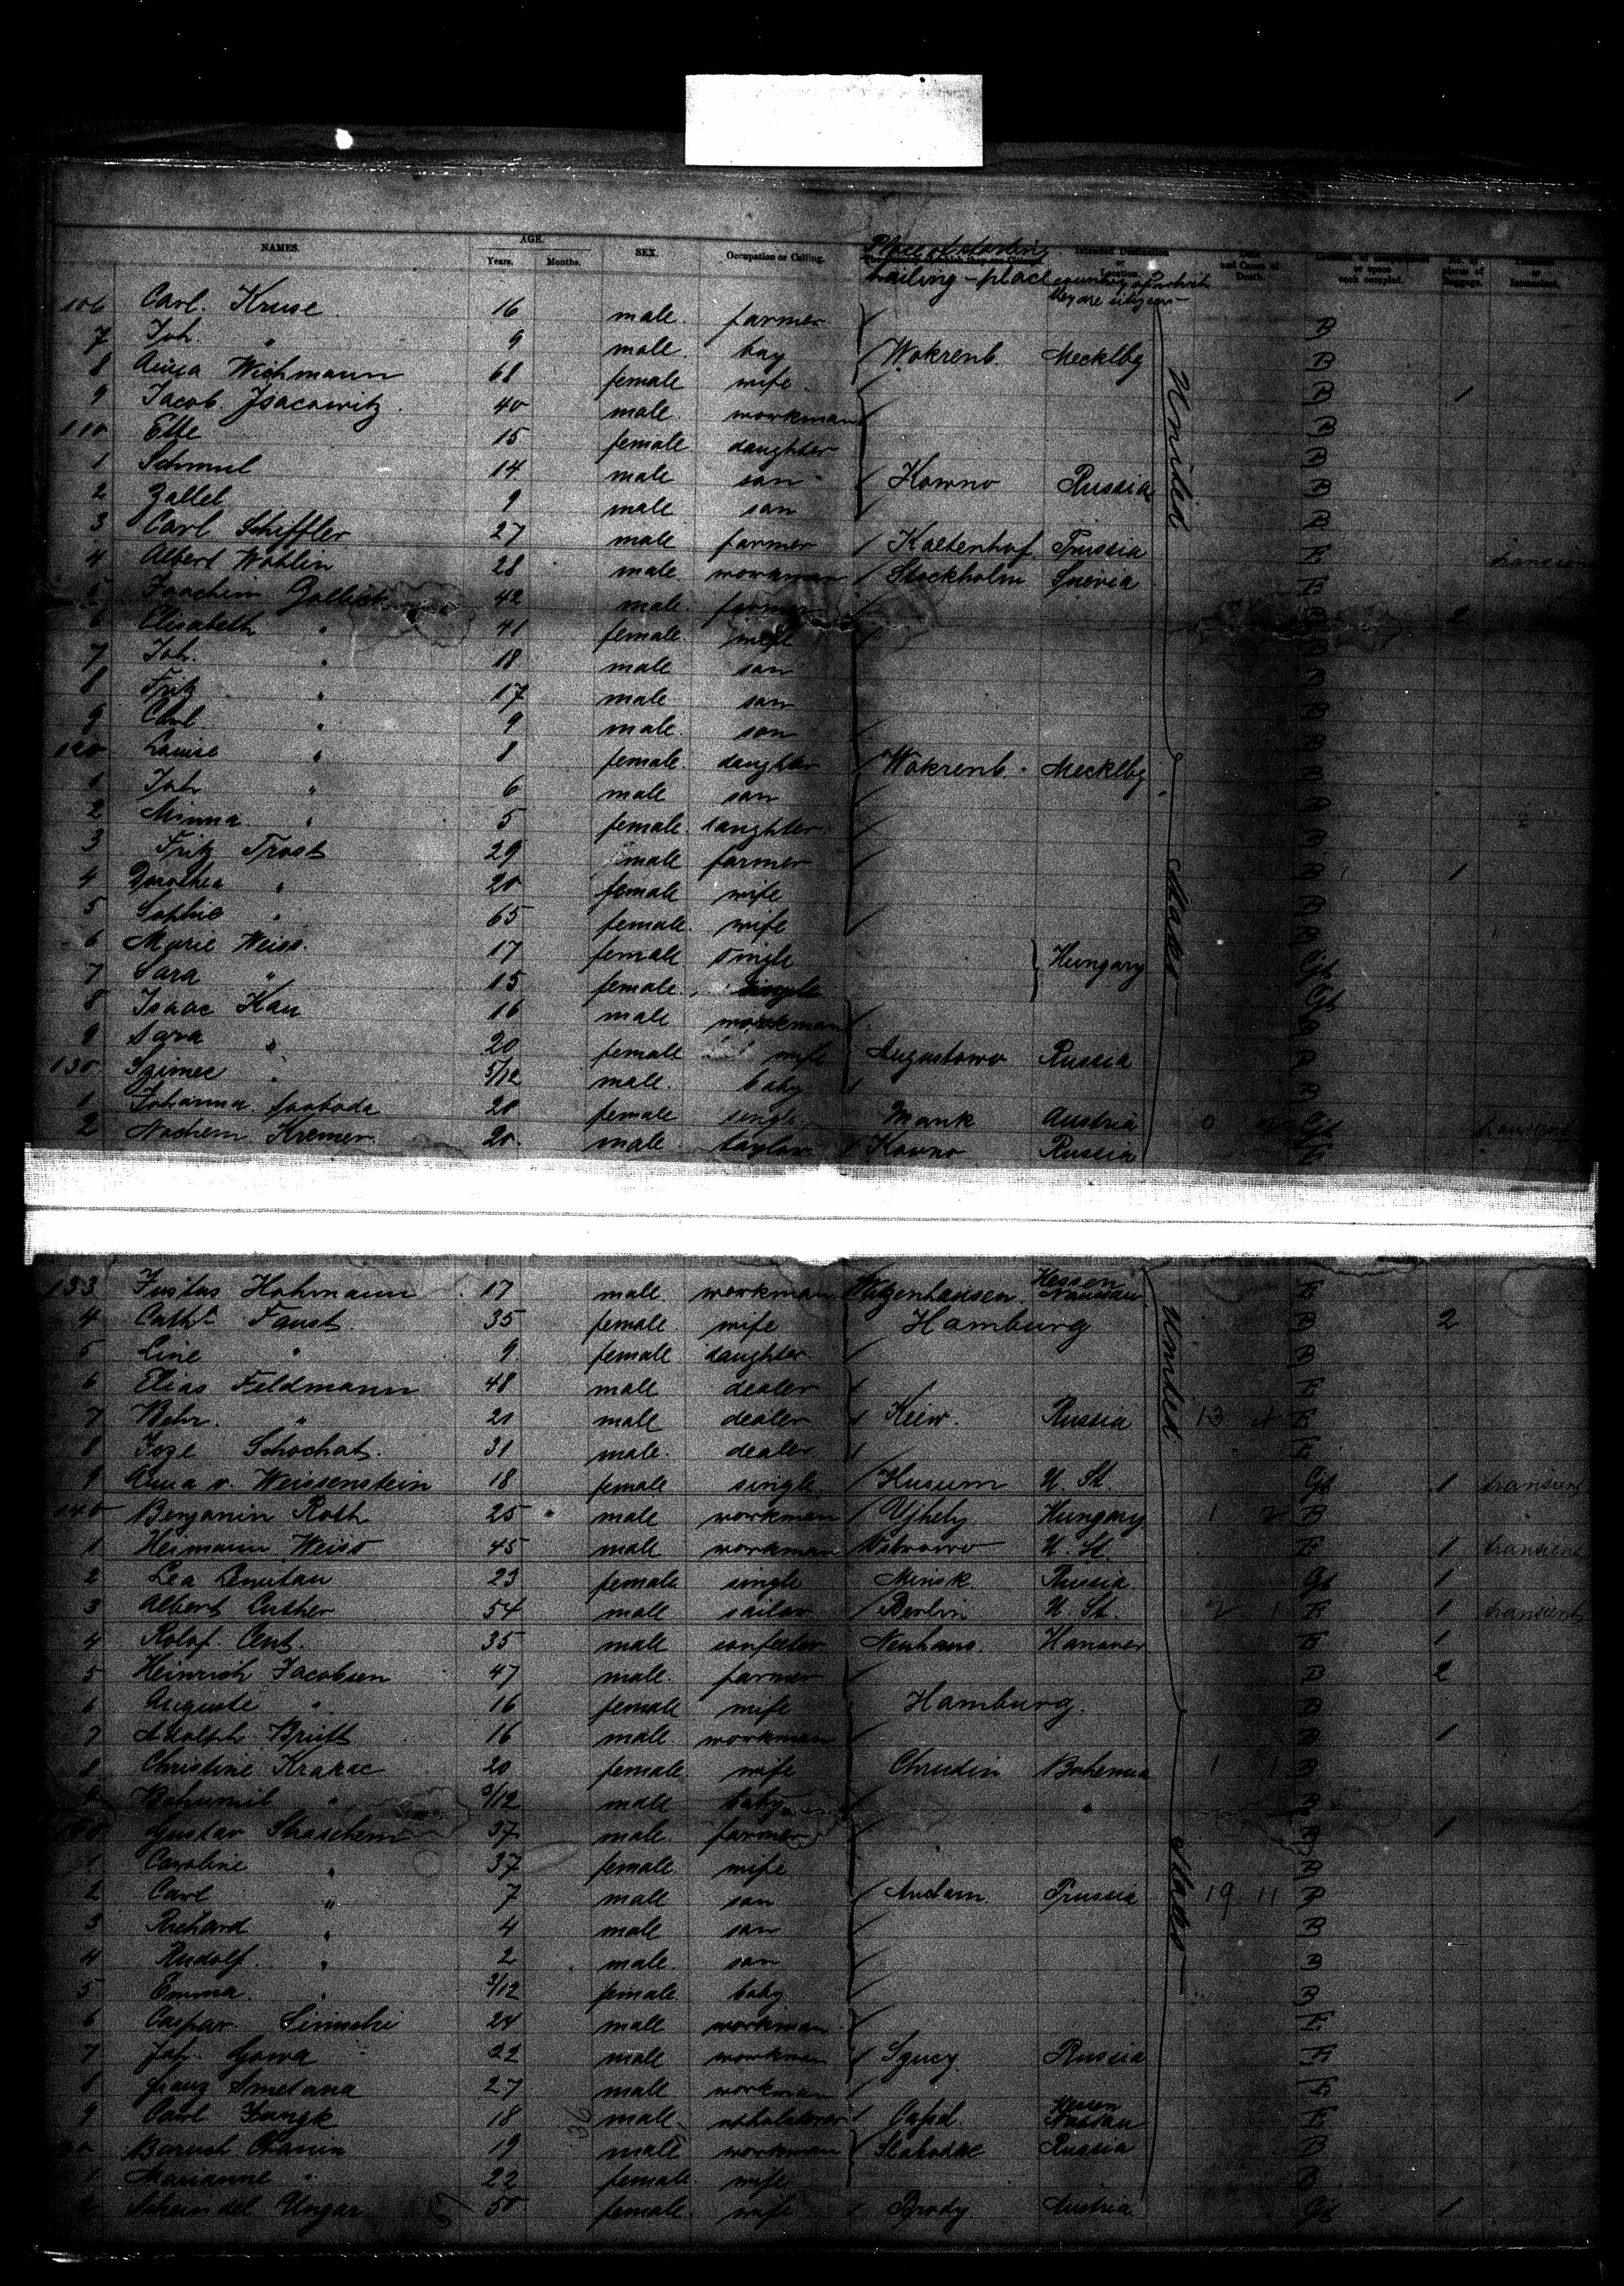 NAMES. AGE. Years. Months. SEX. Occupation or Calling. Place of starting hailing-place Intended Destination or Location. country of which they are citizens - and Cause of Death. or space each occupied. No. of pieces of Baggage. Transient or Intransient.
106 Carl. Kruse 16 male. farmer B
7 Joh. " 9 male. boy Wokrenb. Mecklbg B
8 Wichmann 68 female wife. B 1
9 Jacob. Isacowitz. 40 male. workman B
110 Ette 15 female daughter B
1 Schmul 14 male son Kowno Russia B
2 Zallel 9 male son B
3 Carl Schiffler 27 male farmer Kaltenhof. Prussia E transient
4 Albert Wohlin 28 male workman Stockholm Suevia E
5 Joachim 42 male. farmer B 2
6 Elisabeth " 41 female. wife B
7 Joh. " 18 male son B
8 Fritz " 17 male son B
9 Carl " 9 male son B
120 Louise " 8 female. daughter Wokrenb. Mecklbg B
1 Joh " 6 male son B
2 Minna " 5 female. daughter B
3 Fritz Trost 29 male farmer B 1
4 Dorothea " 20 female wife B
5 Sophie " 65 female. wife B
6 Marie Weiss. 17 female single Hungary Gt
7 Sara " 15 female. single Gt
8 Isaac Kan 16 male workman B
9 Sara " 20 female wife Augustowo Russia B
130 " 5/12 male. baby B
1 Johanna Svoboda 20 female single. Mank Austria Gt transient
2 Nochem Kremer 20. male. taylor Kowno Russia E
United States
133 Justus Hohmann 17 male workman Witzenhausen. Hessen Nassau E
4 Cathe Faust. 35 female. wife Hamburg B 2
5 Line " 9 female daughter. B
6 Elias Feldmann 48 male dealer E
7 Behr. " 21 male dealer Keiw. Russia 13 E
8 Schochat. 31 male. dealer E
9 Anna v. Weissenstein 18 female single Husum U. St. Gt 1 transient
140 Benjamin Roth 25 male workman Ujhely Hungary 1 2 B
1 Hermann Weiss 45 male workman Ostrowo U. St. E 1 transient
2 Lea Lewitan 23 female single Minsk. Russia. Gt 1
3 Albert Luther 54 male sailor Berlin U. St. 2 1 E 1 transient
4 Rolof. 35 male confecter Neuhaus. Hanover E 1
5 Heinrich Jacobsen 47 male. farmer B 2
6 Auguste " 16 female wife Hamburg. B
7 Adolph 16 male. workman B 1
8 Christine 20 female. wife Chrudin Bohemia 1 1 B
9 Bohumil " 3/12 male baby B
150 Gustav 37 male. farmer B 1
1 Caroline " 37 female. wife B
2 Carl " 7 male son Anclam. Prussia 19 11 B
3 Richard " 4 male son B
4 Rudolf. " 2 male. son B
5 Emma. " 3/12 female. baby B
6 Caspar. 24 male workman E
7 Joh. 22 male workman Russia E
8 Franz Smetana 27 male workman E
9 Carl Jungk 18 male. upholsterer Hessen Nassau E
160 Baruch Chanin 19 male workman Slabodke Russia B
1 Marianne " 22 female. wife B
2 Scheindel Ungar 50 female. wife Brody Austria Gt 1
United States
36